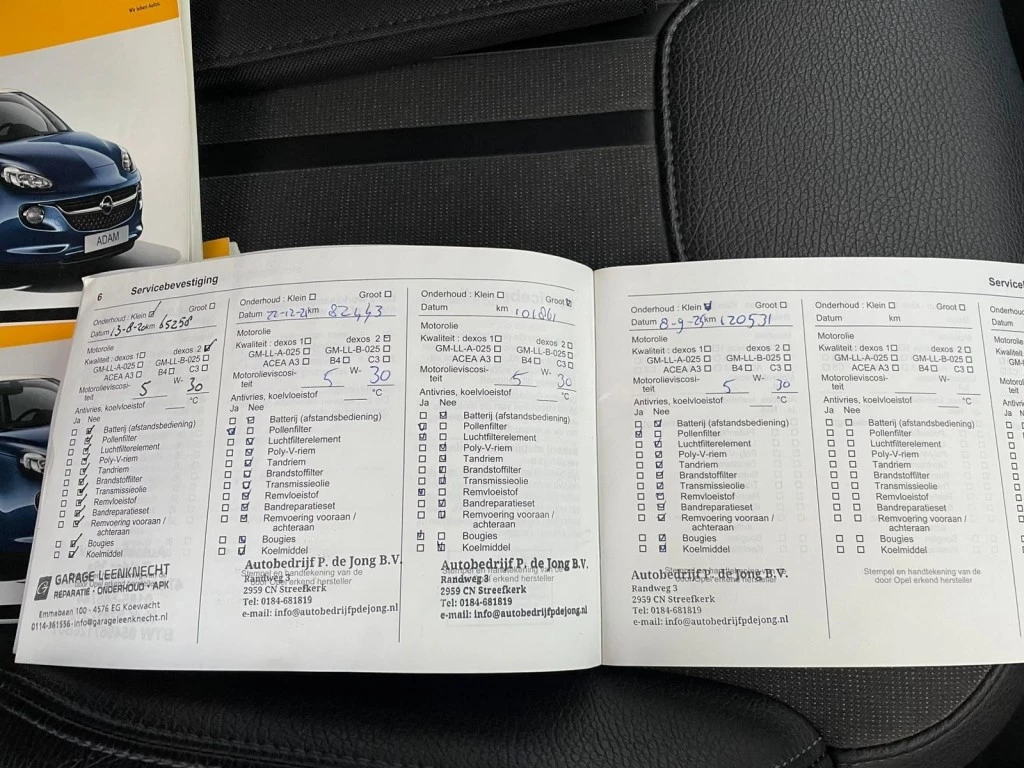 We leben Autos.
ADAM
6 Servicebevestiging
Onderhoud : Klein ☑ Groot ☐
Datum 13-8-20 km 65258
Motorolie
Kwaliteit : dexos 1 ☐ dexos 2 ☑
GM-LL-A-025 ☐ GM-LL-B-025 ☐
ACEA A3 ☐ B4 ☐ C3 ☐
Motorolieviscosi-
teit 5 W- 30
Antivries, koelvloeistof °C
Ja Nee
☐ ☑ Batterij (afstandsbediening)
☐ ☑ Pollenfilter
☐ ☑ Luchtfilterelement
☐ ☑ Poly-V-riem
☐ ☑ Tandriem
☐ ☑ Brandstoffilter
☐ ☑ Transmissieolie
☐ ☑ Remvloeistof
☐ ☑ Bandreparatieset
☐ ☑ Remvoering vooraan /
achteraan
☐ ☑ Bougies
☐ ☑ Koelmiddel
GARAGE LEENKNECHT
REPARATIE · ONDERHOUD · APK
Emmabaan 100 - 4576 EG Koewacht
0114-361536 - info@garageleenknecht.nl
Onderhoud : Klein ☐ Groot ☐
Datum 22-12-21 km 82443
Motorolie
Kwaliteit : dexos 1 ☐ dexos 2 ☑
GM-LL-A-025 ☐ GM-LL-B-025 ☐
ACEA A3 ☐ B4 ☐ C3 ☐
Motorolieviscosi-
teit 5 W- 30
Antivries, koelvloeistof °C
Ja Nee
☐ ☑ Batterij (afstandsbediening)
☑ ☐ Pollenfilter
☐ ☑ Luchtfilterelement
☐ ☑ Poly-V-riem
☐ ☑ Tandriem
☐ ☑ Brandstoffilter
☐ ☑ Transmissieolie
☐ ☑ Remvloeistof
☐ ☑ Bandreparatieset
☐ ☑ Remvoering vooraan /
achteraan
☐ ☑ Bougies
☐ ☑ Koelmiddel
Autobedrijf P. de Jong B.V.
Stempel en handtekening van de
door Opel erkend hersteller
Randweg 3
2959 CN Streefkerk
Tel: 0184-681819
e-mail: info@autobedrijfpdejong.nl
Onderhoud : Klein ☐ Groot ☑
Datum km 101861
Motorolie
Kwaliteit : dexos 1 ☐ dexos 2 ☐
GM-LL-A-025 ☐ GM-LL-B-025 ☐
ACEA A3 ☐ B4 ☐ C3 ☐
Motorolieviscosi-
teit 5 W- 30
Antivries, koelvloeistof °C
Ja Nee
☐ ☑ Batterij (afstandsbediening)
☑ ☐ Pollenfilter
☑ ☐ Luchtfilterelement
☐ ☑ Poly-V-riem
☐ ☑ Tandriem
☐ ☑ Brandstoffilter
☐ ☑ Transmissieolie
☑ ☐ Remvloeistof
☐ ☑ Bandreparatieset
☐ ☑ Remvoering vooraan /
achteraan
☑ ☐ Bougies
☐ ☑ Koelmiddel
Autobedrijf P. de Jong B.V.
Stempel en handtekening van de
door Opel erkend hersteller
Randweg 3
2959 CN Streefkerk
Tel: 0184-681819
e-mail: info@autobedrijfpdejong.nl
Onderhoud : Klein ☑ Groot ☐
Datum 8-9-25 km 120531
Motorolie
Kwaliteit : dexos 1 ☐ dexos 2 ☐
GM-LL-A-025 ☐ GM-LL-B-025 ☐
ACEA A3 ☐ B4 ☐ C3 ☐
Motorolieviscosi-
teit 5 W- 30
Antivries, koelvloeistof °C
Ja Nee
☐ ☑ Batterij (afstandsbediening)
☑ ☐ Pollenfilter
☐ ☑ Luchtfilterelement
☐ ☑ Poly-V-riem
☐ ☑ Tandriem
☐ ☑ Brandstoffilter
☐ ☑ Transmissieolie
☐ ☑ Remvloeistof
☐ ☑ Bandreparatieset
☐ ☑ Remvoering vooraan /
achteraan
☐ ☑ Bougies
☐ ☑ Koelmiddel
Autobedrijf P. de Jong B.V.
Randweg 3
2959 CN Streefkerk
Tel: 0184-681819
e-mail: info@autobedrijfpdejong.nl
Onderhoud : Klein ☐ Groot ☐
Datum km
Motorolie
Kwaliteit : dexos 1 ☐ dexos 2 ☐
GM-LL-A-025 ☐ GM-LL-B-025 ☐
ACEA A3 ☐ B4 ☐ C3 ☐
Motorolieviscosi-
teit W-
Antivries, koelvloeistof °C
Ja Nee
☐ ☐ Batterij (afstandsbediening)
☐ ☐ Pollenfilter
☐ ☐ Luchtfilterelement
☐ ☐ Poly-V-riem
☐ ☐ Tandriem
☐ ☐ Brandstoffilter
☐ ☐ Transmissieolie
☐ ☐ Remvloeistof
☐ ☐ Bandreparatieset
☐ ☐ Remvoering vooraan /
achteraan
☐ ☐ Bougies
☐ ☐ Koelmiddel
Stempel en handtekening van de
door Opel erkend hersteller